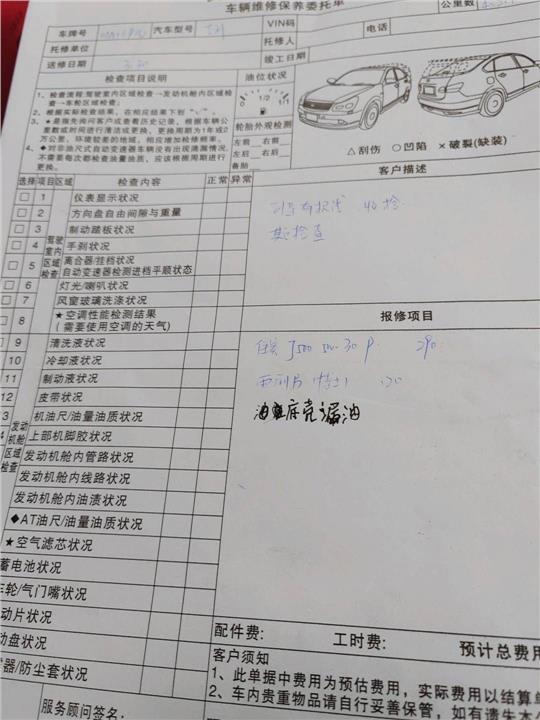 车辆维修保养委托单
公里数
车牌号 汽车型号 VIN码
托修单位 托修人 电话
送修日期 竣工日期
检查项目说明 油位状况
1、检查流程:驾驶室内区域检查→发动机舱内区域检查→车轮区域检查;
2、根据实际检查结果,在相应结果下划"√"。
3、★是指先询问客户或查看历史记录,根据车辆公里数或时间进行清洁或更换,更换周期为1年或2万公里,环境较差的地域,相应增加检修频率。
4、◆对非油尺式自动变速器车辆没有出现渗漏情况,不需要每次都检查油量油质,应该根据周期进行更换。
0 1/2 1/1
轮胎外观检测
左前 右前
左后 右后
备胎
△刮伤 ○凹陷 ×破裂(缺装)
选择 项目 区域 检查内容 正常 异常
客户描述
驾驶室内区域检查
1 仪表显示状况
2 方向盘自由间隙与重量
3 制动踏板状况
4 手刹状况
5 离合器/挂档状况
自动变速器检测进档平顺状态
6 灯光/喇叭状况
7 风窗玻璃洗涤状况
8 ★空调性能检测结果
(需要使用空调的天气)
报修项目
9 清洗液状况
10 冷却液状况
11 制动液状况
12 皮带状况
3 机油尺/油量油质状况
4 上部机脚胶状况
发动机舱区域检查
发动机舱内管路状况
发动机舱内线路状况
发动机舱内油渍状况
◆AT油尺/油量油质状况
★空气滤芯状况
蓄电池状况
车轮/气门嘴状况
动片状况
动盘状况
器/防尘套状况
检查
5W-30 290
漏油
配件费: 工时费: 预计总费用
客户须知
1、此单据中费用为预估费用,实际费用以结算单
2、车内贵重物品请自行妥善保管,如有遗失本
服务顾问签名: